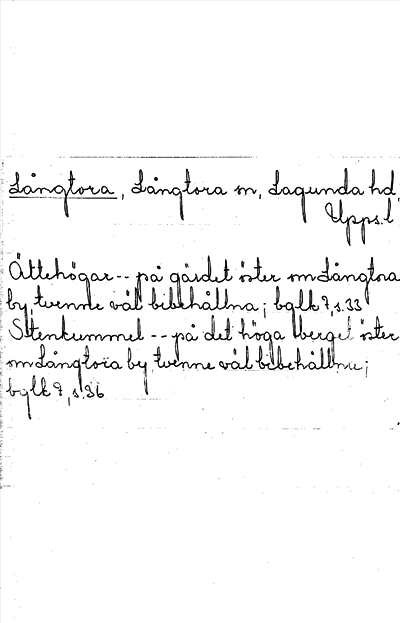 Långtora, Långtora sn, Lagunda hd,
Upps.l
Ättehögar -- på gärdet öster om Långtora
by, tvenne väl bibehållna; bglk 7, s.33
Stenkummel -- på det höga berget öster
om Långtora by tvenne väl bibehållna;
bglk 7, s.36